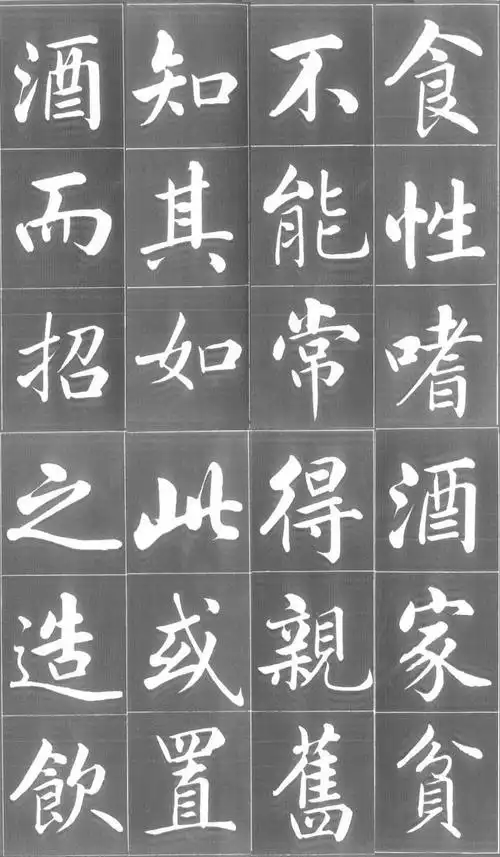 食性嗜酒家貧
不能常得親舊
知其如此或置
酒而招之造飲